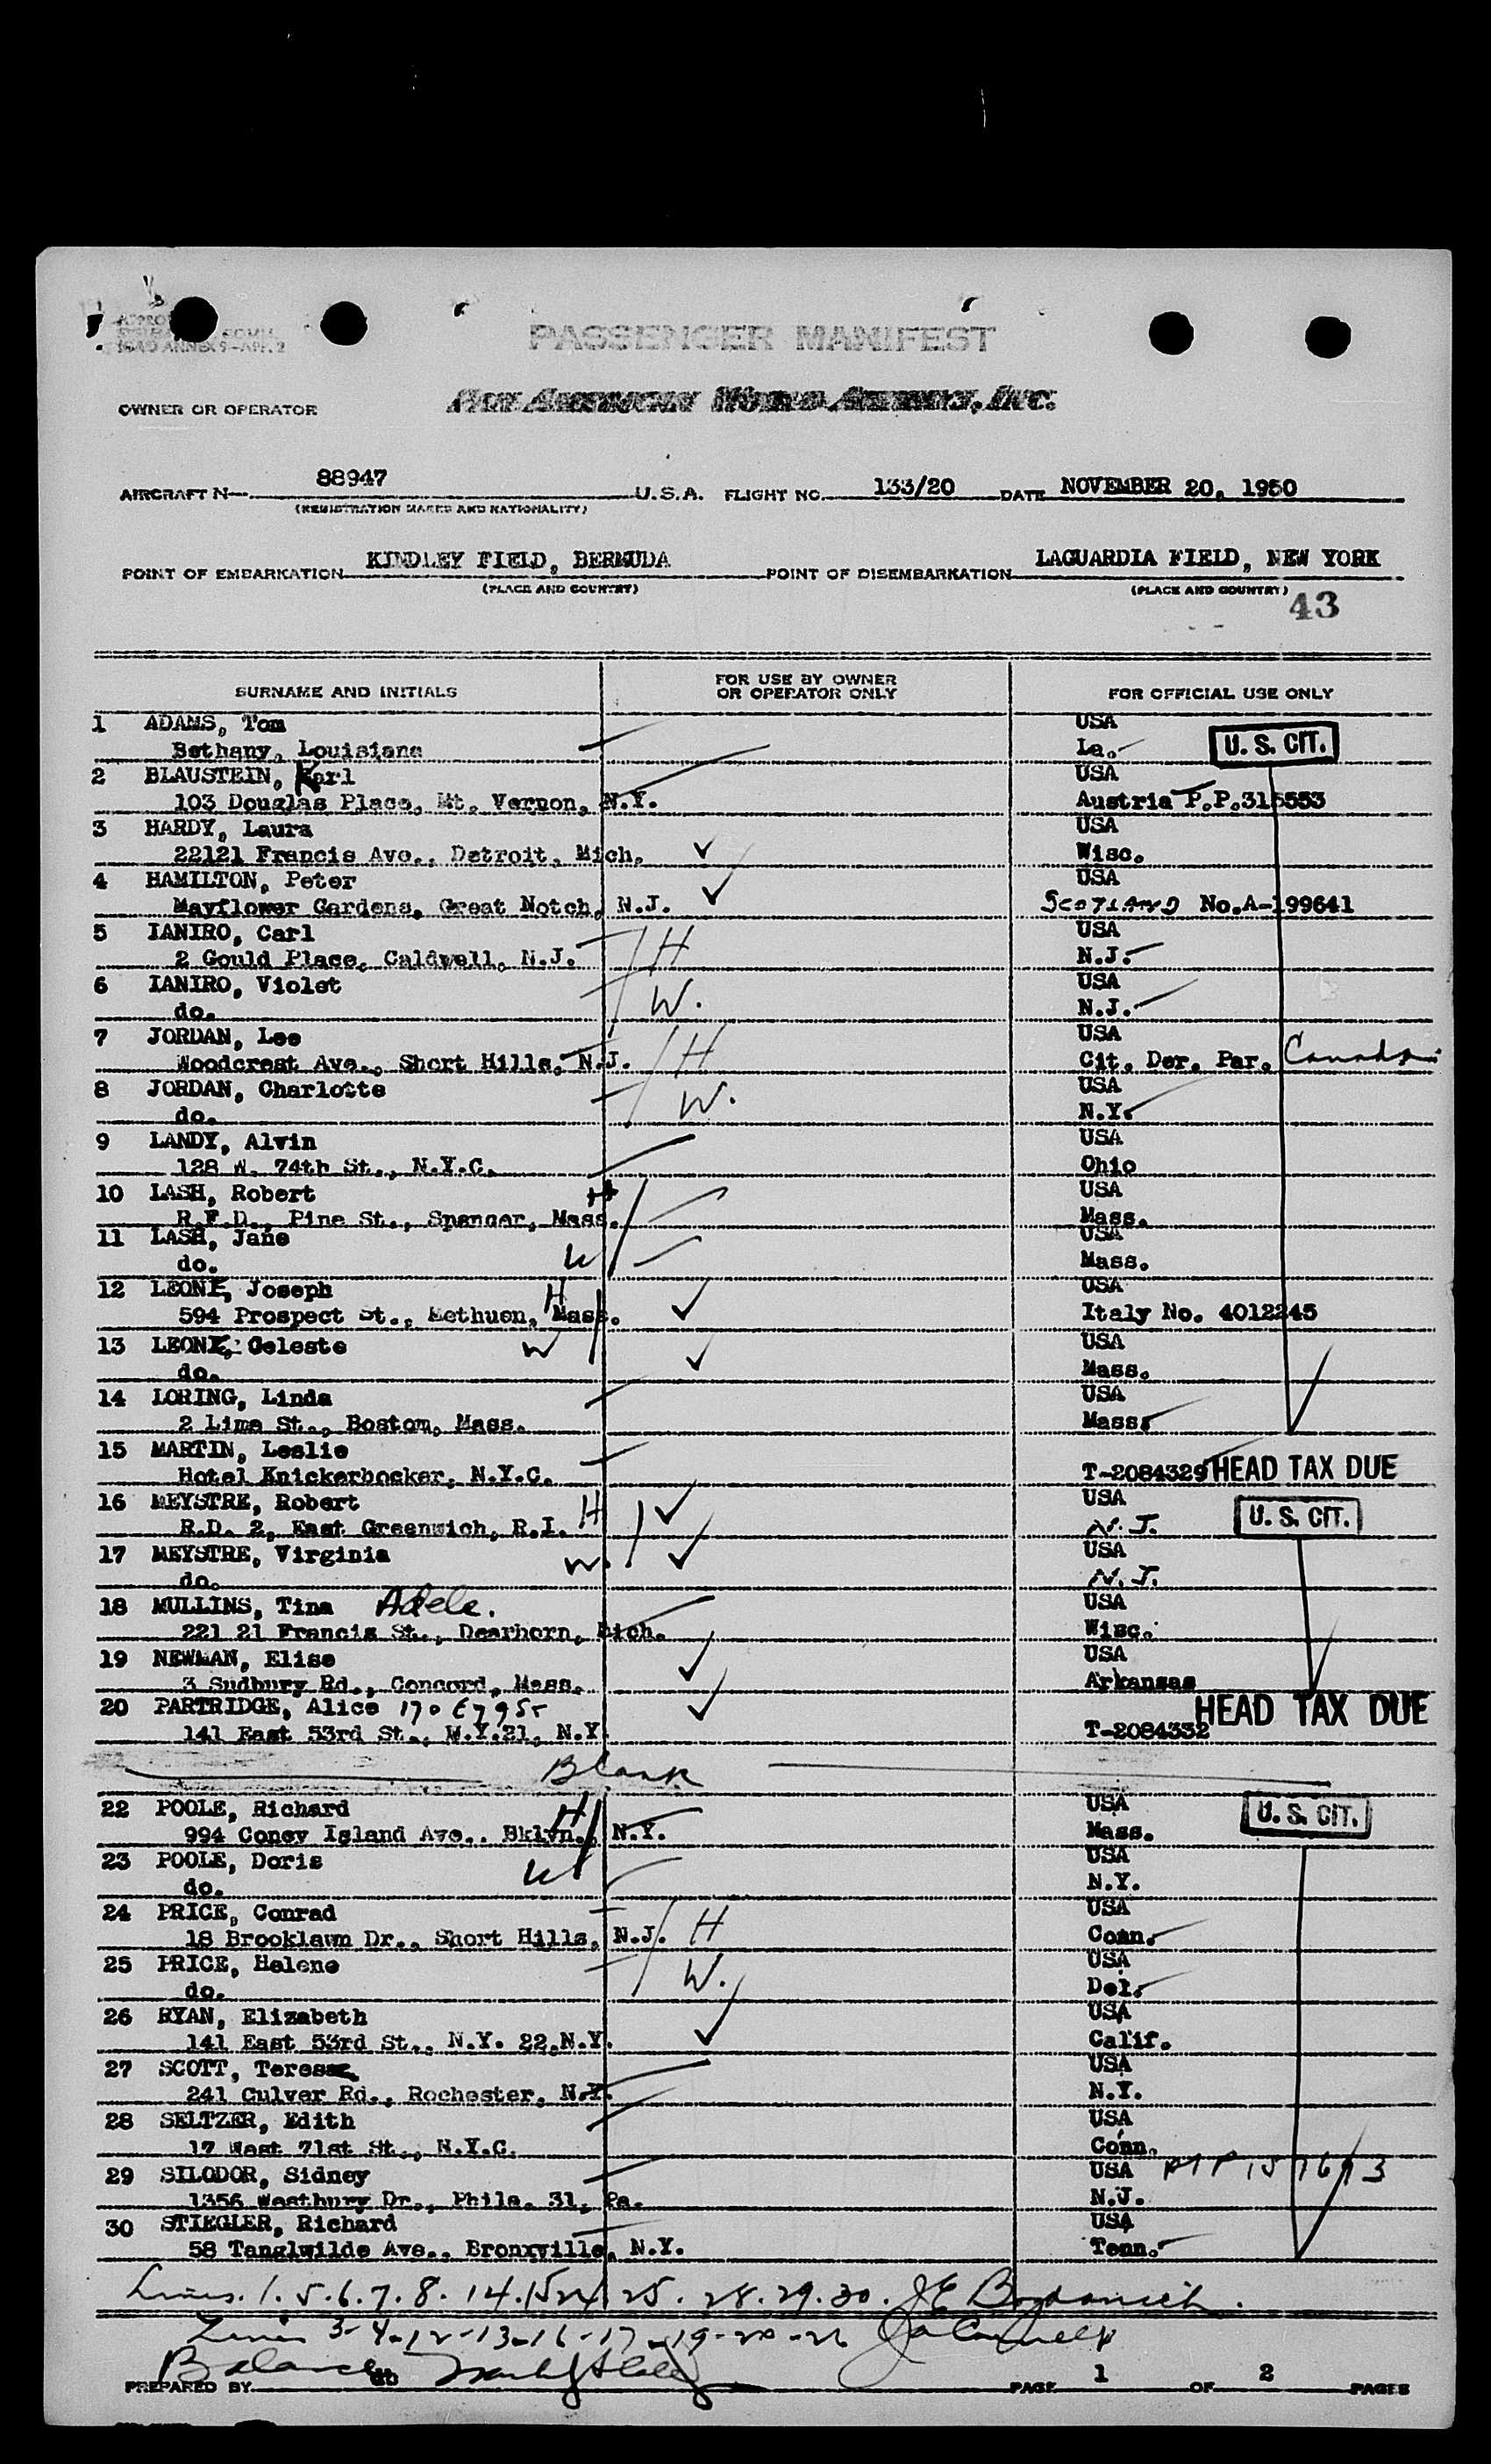 PASSENGER MANIFEST
OWNER OR OPERATOR
Pan American World Airways, Inc.
AIRCRAFT N— 88947 U.S.A. FLIGHT NO. 133/20 DATE NOVEMBER 20, 1950
(REGISTRATION MARKS AND NATIONALITY)
POINT OF EMBARKATION KINDLEY FIELD, BERMUDA POINT OF DISEMBARKATION LAGUARDIA FIELD, NEW YORK
(PLACE AND COUNTRY) (PLACE AND COUNTRY)
43
SURNAME AND INITIALS FOR USE BY OWNER OR OPERATOR ONLY FOR OFFICIAL USE ONLY
1 ADAMS, Tom USA
Bethany, Louisiana La. U. S. CIT.
2 BLAUSTEIN, Karl USA
103 Douglas Place, Mt. Vernon, N.Y. Austria P.P.315553
3 HARDY, Laura USA
22121 Francis Ave., Detroit, Mich. Wisc.
4 HAMILTON, Peter USA
Mayflower Gardens, Great Notch, N.J. Scotland No.A-199641
5 IANIRO, Carl H USA
2 Gould Place, Caldwell, N.J. N.J.
6 IANIRO, Violet W. USA
do. N.J.
7 JORDAN, Lee H USA
Woodcrest Ave., Short Hills, N.J. Cit. Der. Par. Canada
8 JORDAN, Charlotte W. USA
do. N.Y.
9 LANDY, Alvin USA
128 W. 74th St., N.Y.C. Ohio
10 LASH, Robert H USA
R.F.D., Pine St., Spencer, Mass. Mass.
11 LASH, Jane USA
do. W Mass.
12 LEONE, Joseph H USA
594 Prospect St., Methuen, Mass. Italy No. 4012245
13 LEONE, Celeste W USA
do. Mass.
14 LORING, Linda USA
2 Lime St., Boston, Mass. Mass.
15 MARTIN, Leslie
Hotel Knickerbocker, N.Y.C. T-2084329 HEAD TAX DUE
16 MEYSTRE, Robert H USA
R.D. 2, East Greenwich, R.I. N.J. U. S. CIT.
17 MEYSTRE, Virginia W. USA
do. N.J.
18 MULLINS, Tina Adele. USA
221 21 Francis St., Dearborn, Mich. Wisc.
19 NEWMAN, Elise USA
3 Sudbury Rd., Concord, Mass. Arkansas
20 PARTRIDGE, Alice HEAD TAX DUE
141 East 53rd St., N.Y.21, N.Y. T-2084332
Blank
22 POOLE, Richard H USA
994 Coney Island Ave., Bklyn., N.Y. Mass. U. S. CIT.
23 POOLE, Doris W USA
do. N.Y.
24 PRICE, Conrad H USA
18 Brooklawn Dr., Short Hills, N.J. Conn.
25 PRICE, Helene W. USA
do. Del.
26 RYAN, Elizabeth USA
141 East 53rd St., N.Y. 22,N.Y. Calif.
27 SCOTT, Teresa USA
241 Culver Rd., Rochester, N.Y. N.Y.
28 SELTZER, Edith USA
17 West 71st St., N.Y.C. Conn.
29 SILODOR, Sidney USA
1356 Westbury Dr., Phila. 31, Pa. N.J.
30 STIEGLER, Richard USA
58 Tanglwilde Ave., Bronxville, N.Y. Tenn.
Lines. 1. 5. 6. 7. 8. 14. 15 24 25. 28. 29. 30.
Lines 3-4-12-13-16-17-19-20-26
Balance
PREPARED BY PAGE 1 OF 2 PAGES